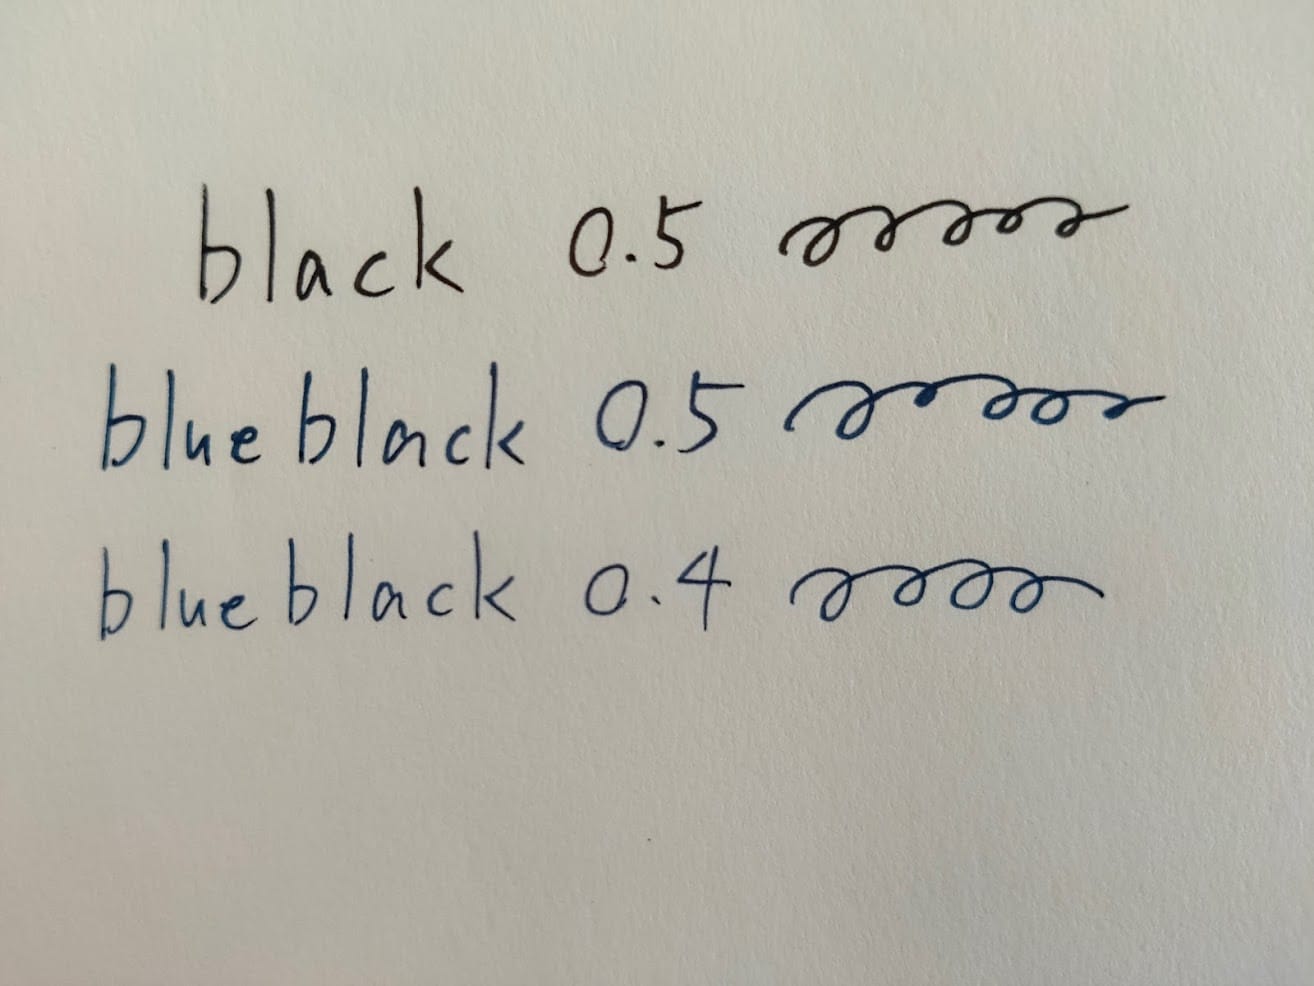 black 0.5
blue black 0.5
blue black 0.4